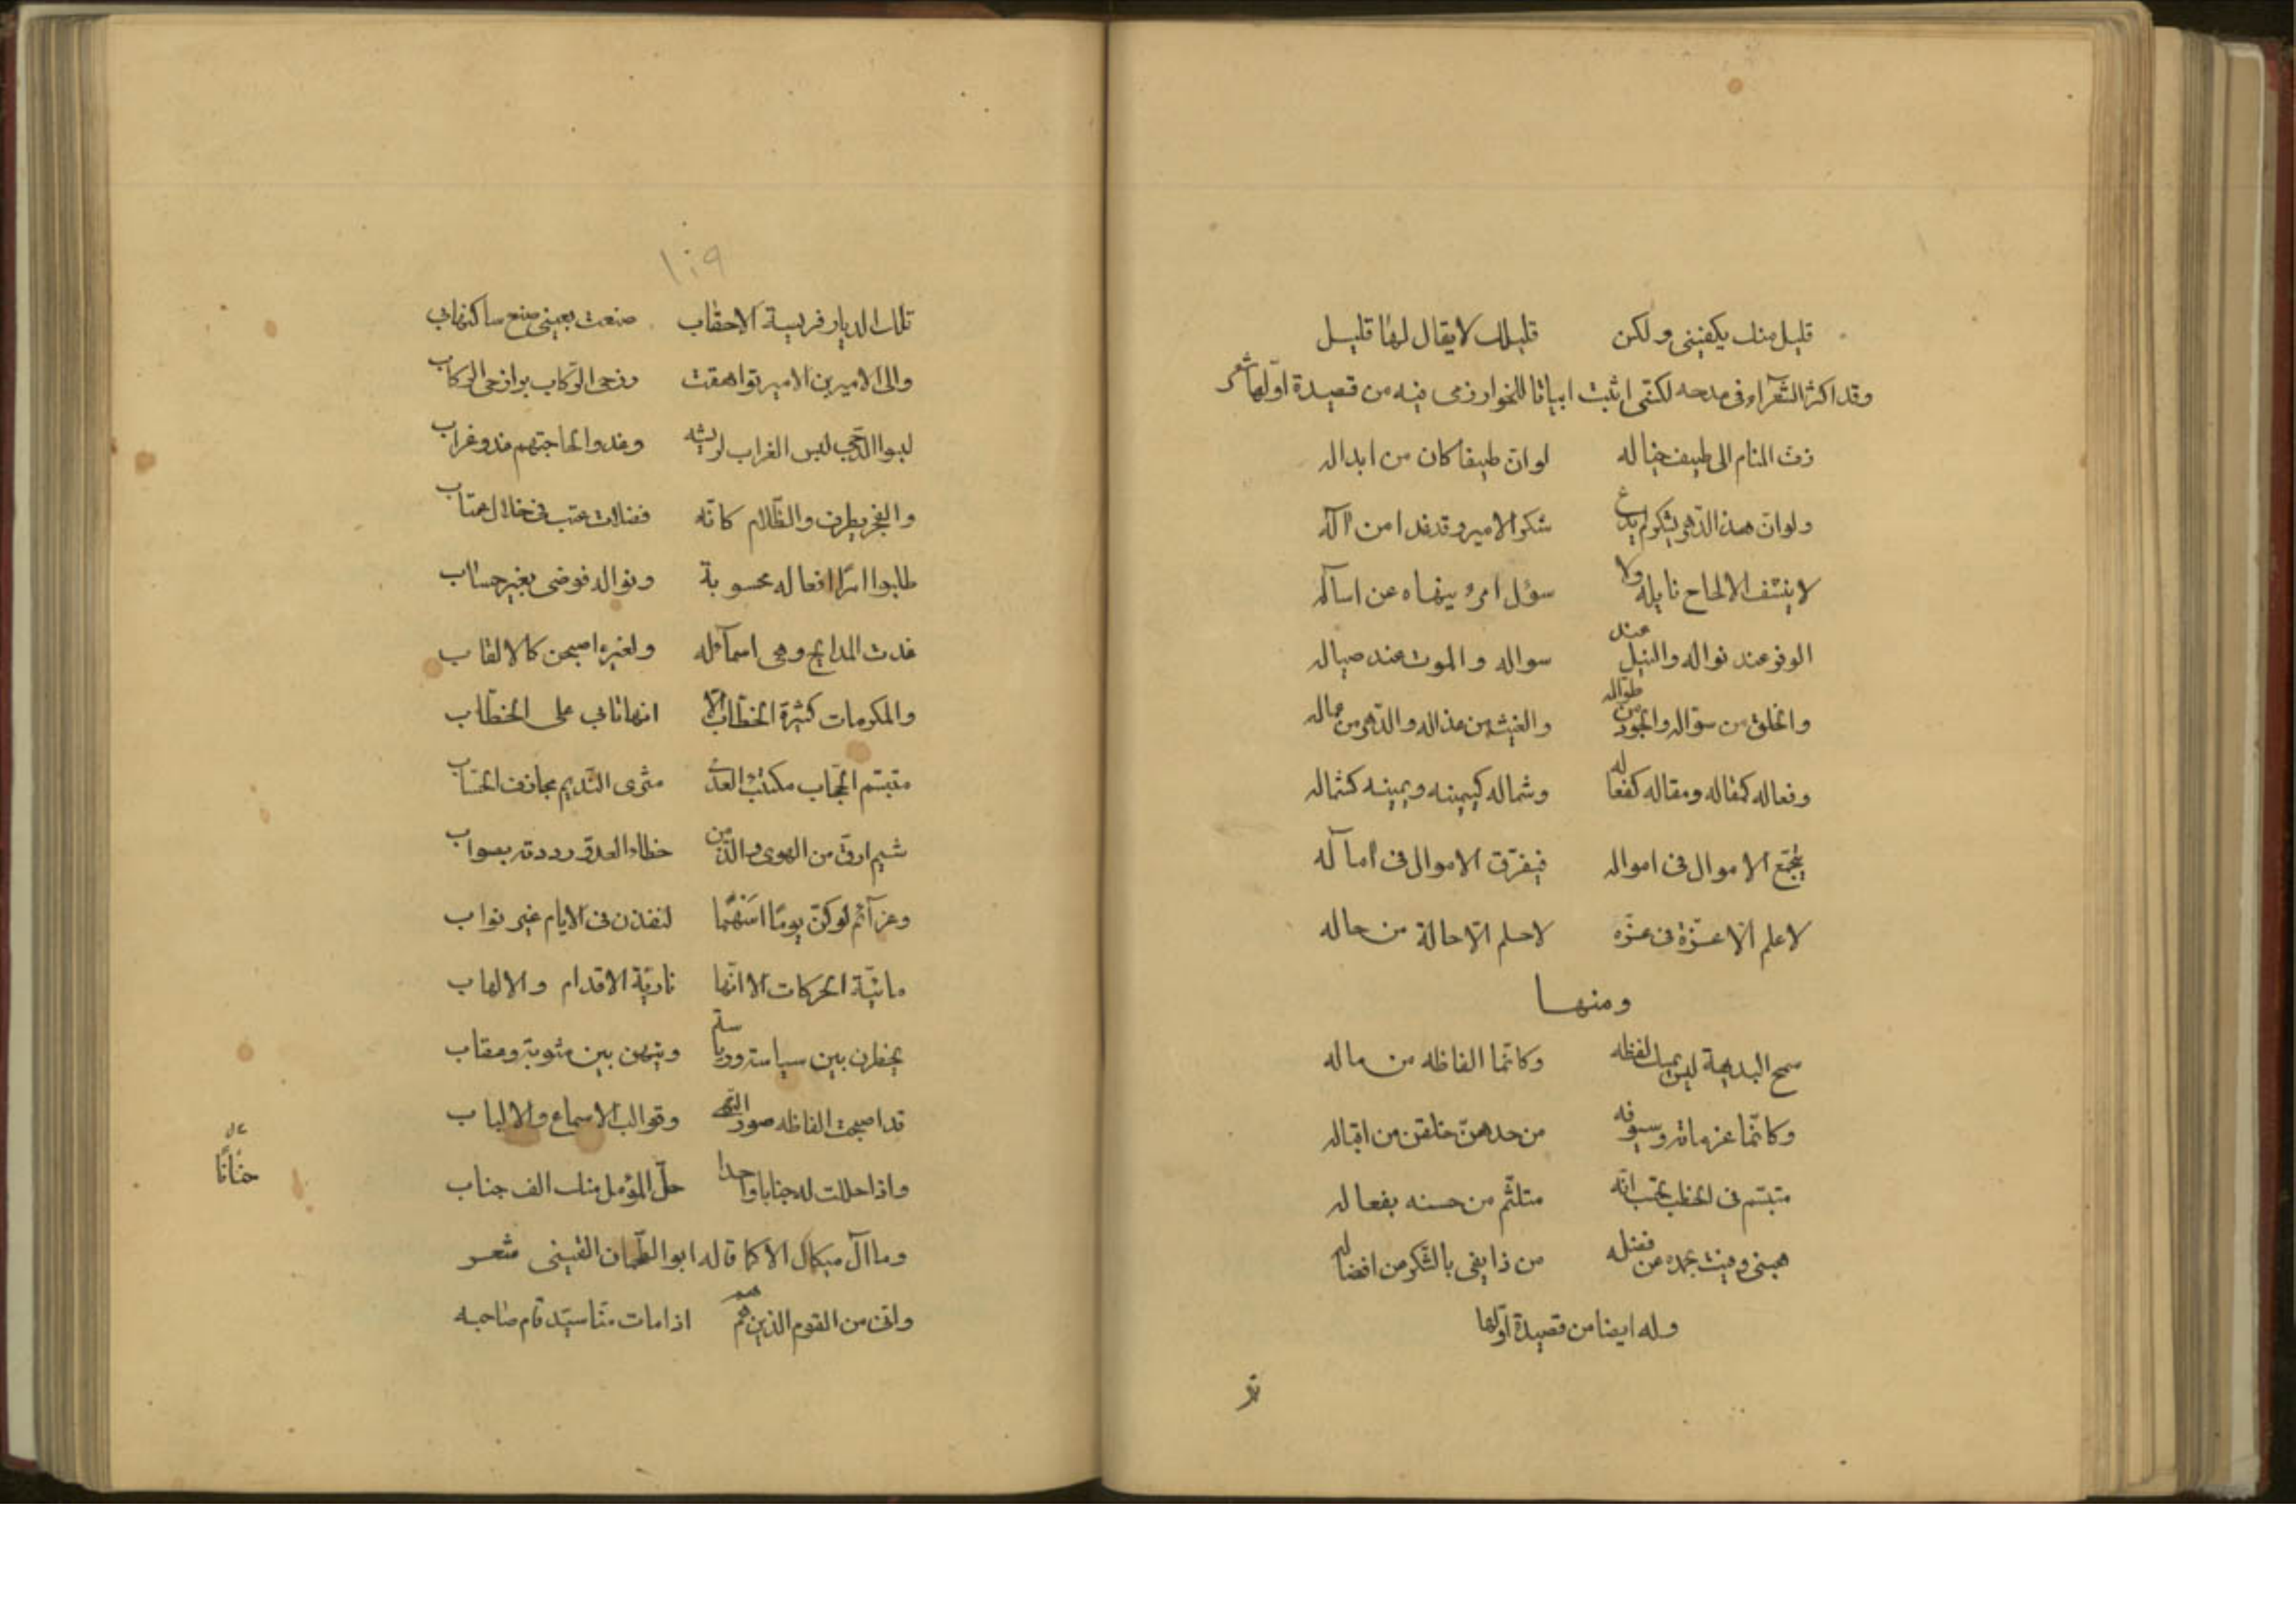 قليل منك يكفيني ولكن قليلك لا يقال لها قليل
وقد اكثر الشعرآء في مدحه لكنى اثبت ابياتا للخوارزمى فيه من قصيدة اوّلها شعر
زث المنام الى طيف خياله لو انّ طيفا كان من ابداله
ولو انّ هذا الدّهر يشكر لم يدع شكر الامير وقد غدا من آله
لا ينشف الالحاح نايله ولا سؤل امرء ينهاه عن اسآله
الوفر عند نواله والنيل عند سواله والموت عند صياله
والخلق من سؤاله والجود من طوّاله والغيث من عذاله والدّهر من عماله
وفعاله كمقاله ومقاله كفعاله وشماله كيمينه ويمينه كشماله
يجتمع الاموال فى امواله فيفرّق الاموال فى امآله
لا علم الّا عزّة فى عزّه لا حلم الّا حالة من حاله
ومنها
سمح البديهة ليس يمسك لفظه وكانّما الفاظه من ماله
وكانّما عزماته وسيوفه من حدهنّ خلقن من اقباله
متبسّم فى الخطب تحسب انّه متلثّم من حسنه بفعاله
هبنى وفيت بحمده عن فضله من ذا يفى بالشّكر من افضاله
وله ايضا من قصيدة اوّلها
تلك
١٠٩
تلك الديار فريسة الاحقاب صنعت بعينى صنع ساكنها بى
والى الامير بن الامير تواهقت رزحى الرّكاب بوازحى الركاب
لبسوا الدّجى لبس الغراب لريشه وغدوا لحاجتهم غدو غراب
والفجر يطرف والظّلام كانّه فضلات عتب فى خلال عتاب
طلبوا امرًا افعاله محسوبة ونواله فوضى بغير حساب
غدت المدايح وهى اسمآء له ولغيره اصبحن كالالقاب
والمكرمات كثيرة الخطّاب الّا انها تابى على الخطّاب
متبسّم الحجّاب مكتئب العدى مثرى النّديم مجازف الحسّاب
شيم ارقّ من الهوى والذّ من خطاء العدوّ رددته بصواب
وعزآئم لو كنّ يومًا اسهمًا لنفذن فى الايام غير نواب
مائيّة الحركات الا انّها ناريّة الاقدام والالهاب
يخطرن بين سياسة ورياسة وينهن بين مثوبة وعقاب
قد اصبحت الفاظه صور النّهى وقوالب الاسماع والالباب
واذا حللت له جنابا واحدا حلّ المؤمل منك الف جناب
وما آل ميكال الا كما قاله ابو الطمحان القينى شعر
وانى من القوم الذين هم هم اذا مات منّا سيّد قام صاحبه